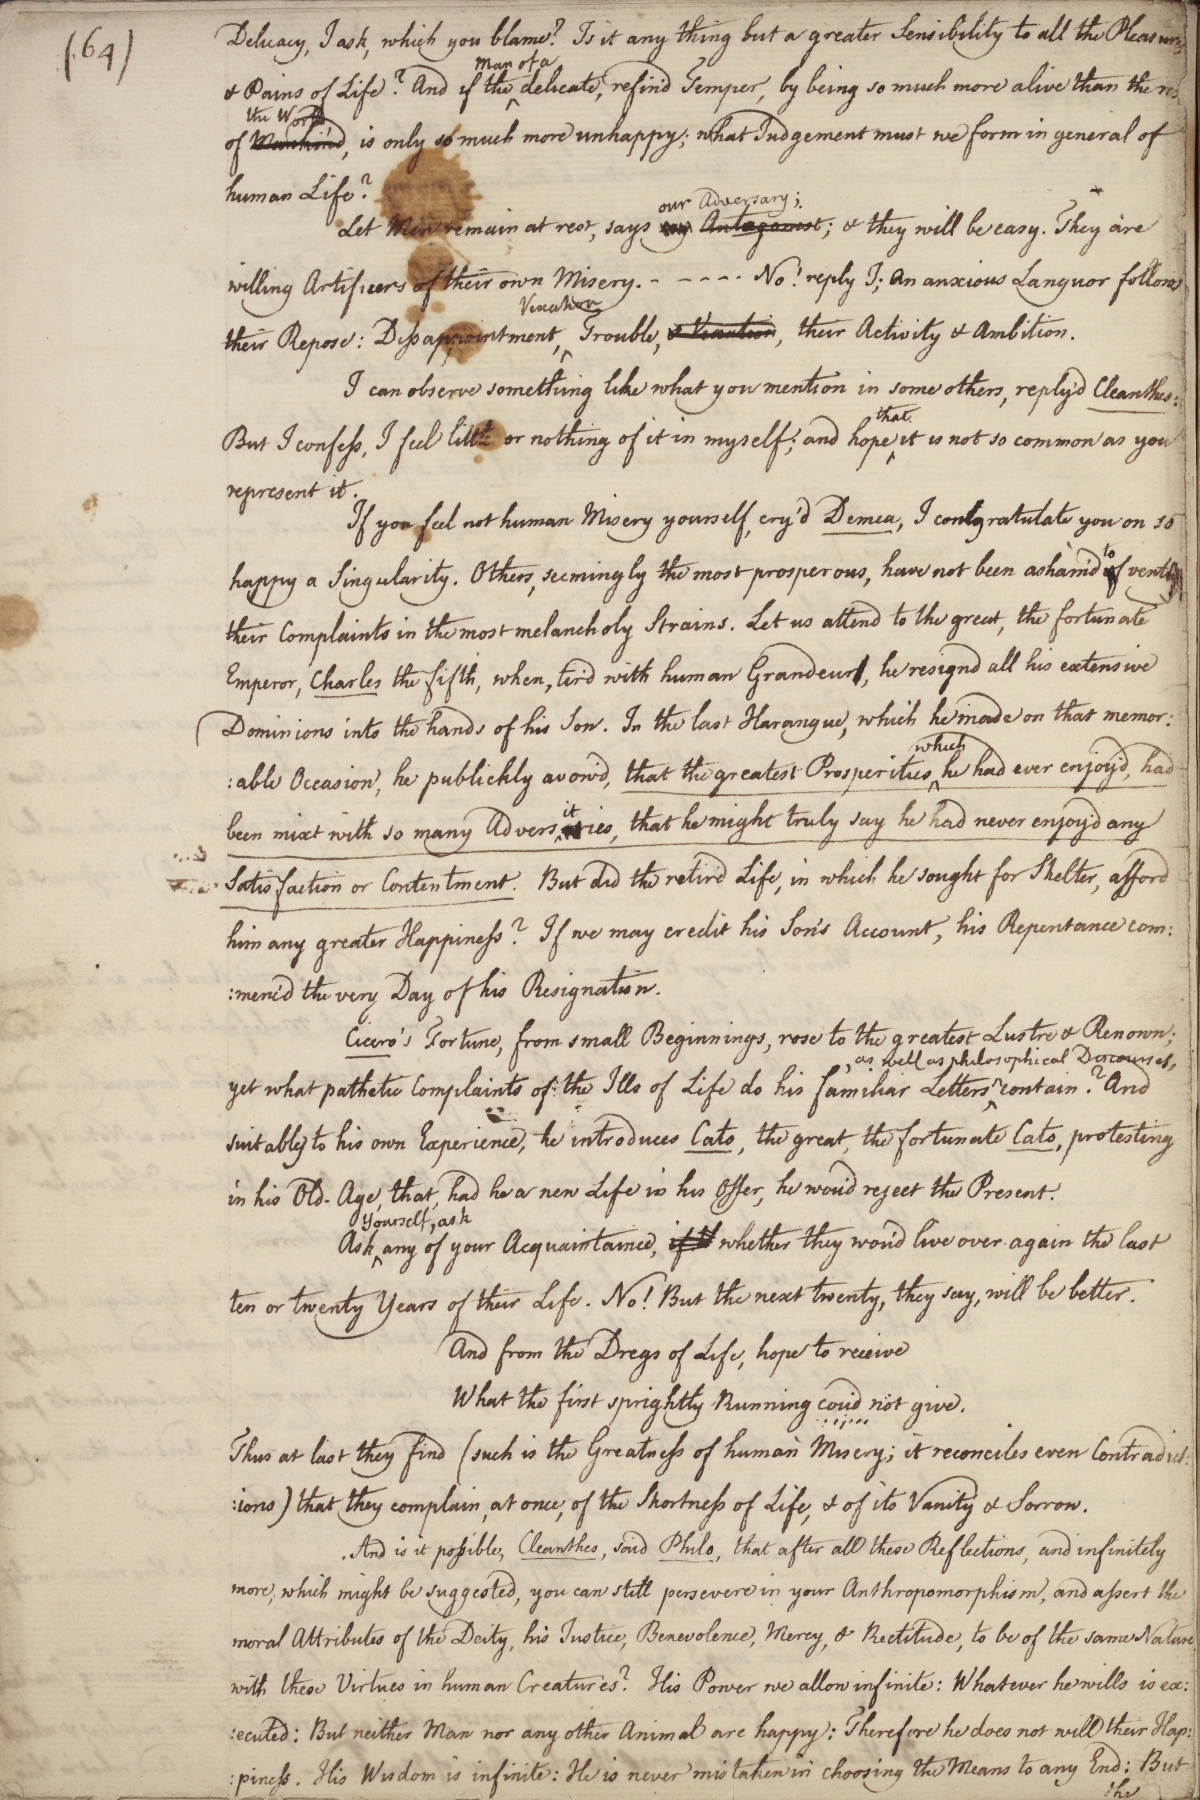 (64)
Delicacy, I ask, which you blame? Is it any thing but a greater Sensibility to all the Pleasures
man of a
& Pains of Life? And if the delicate, refin'd Temper, by being so much more alive than the rest
the World
of Mankind, is only so much more unhappy; what Judgement must we form in general of
human Life?
our Adversary;
Let Men remain at rest, says Antagonist; & they will be easy. They are
willing Artificers of their own Misery. - - - - - No! reply I; an anxious Languor follows
Vexation
their Repose: Dissappointment, Trouble, & Vexation, their Activity & Ambition.
I can observe something like what you mention in some others, reply'd Cleanthes:
that
But I confess, I feel little or nothing of it in myself; and hope it is not so common as you
represent it.
If you feel not human Misery yourself, cry'd Demea, I congratulate you on so
to
happy a Singularity. Others, seemingly the most prosperous, have not been asham'd of vent
their Complaints in the most melancholy Strains. Let us attend to the great, the fortunate
Emperor, Charles the fifth, when, tir'd with human Grandeur, he resign'd all his extensive
Dominions into the hands of his Son. In the last Harangue, which he made on that memor:
which
:able Occasion, he publickly avow'd, that the greatest Prosperities, he had ever enjoy'd, had
it
been mixt with so many Adversities, that he might truly say he had never enjoy'd any
Satisfaction or Contentment. But did the retir'd Life, in which he sought for Shelter, afford
him any greater Happiness? If we may credit his Son's Account, his Repentance com:
:menc'd the very Day of his Resignation.
Cicero's Fortune, from small Beginnings, rose to the greatest Lustre & Renown;
, as well as philosophical Discourses,
yet what pathetic Complaints of the Ills of Life do his familiar Letters contain? And
suitably to his own Experience, he introduces Cato, the great, the fortunate Cato, protesting
in his Old-Age, that, had he a new Life in his Offer, he wou'd reject the Present.
yourself, ask
Ask any of your Acquaintaince, if whether they wou'd live over again the last
ten or twenty Years of their Life. No! But the next twenty, they say, will be better.
And from the Dregs of Life, hope to receive
What the first sprightly Running cou'd not give.
Thus at last they find (such is the Greatness of human Misery; it reconciles even Contradict:
:ions) that they complain, at once, of the Shortness of Life, & of its Vanity & Sorrow.
And is it possible, Cleanthes, said Philo, that after all these Reflections, and infinitely
more, which might be suggested, you can still persevere in your Anthropomorphism, and assert the
moral Attributes of the Deity, his Justice, Benevolence, Mercy, & Rectitude, to be of the same Nature
with these Virtues in human Creatures? His Power we allow infinite: Whatever he wills is ex:
:ecuted: But neither Man nor any other Animal are happy: Therefore he does not will their Hap:
:piness. His Wisdom is infinite: He is never mistaken in choosing the Means to any End: But
the